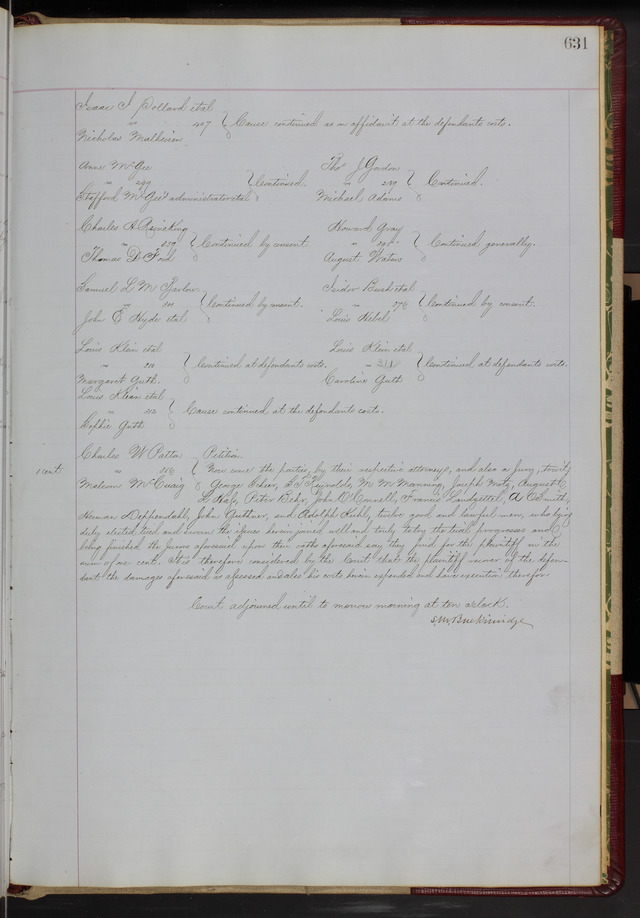 631
Isaac J Pollard et al
" 407 Cause continued as on affidavit at the defendants costs.
Nicholas Mathewson
Anne McGee
" 249 Continued.
Stafford McGee administrator et al
Thos J Gordon
" 259 Continued.
Michael Adams
Charles H
" Continued by consent
Thomas D
Howard Gray
" Continued generally.
August Waters
Samuel L M Barlow
" Continued by consent.
John E Hyde et al
Isidor Bush et al
" 276 Continued by consent.
Louis Hebel
Louis Klein et al
" 210 Continued at defendants costs.
Margaret Guth.
Louis Klein et al
" 311 Continued at defendants costs.
Caroline Guth
Louis Klein et al
" 212 Cause continued at the defendants costs.
Sophie Guth
Charles W Patta Petition
1 cent " 316 Now come the parties, by their respective attorneys, and also a Jury, to wit,
McCuaig George Scheer, Reynolds, M M Manning, Joseph Motz, August C
L Hafs, Peter Behr, John O'Connell, Francis A C Smith,
Herman Deppendahl, John Guthner, and Adolph Kuhls, twelve good and lawful men, who being
duly elected, tried and sworn the issues herein joined, well and truly to try the trial progresses and
being finished the Jurors aforesaid upon their oaths aforesaid say they find for the plaintiff in the
sum of one cent. It is therefore considered by the Court that the plaintiff recover of the defen-
dant the damages aforesaid as assessed and also his costs herein expended and have execution therefor.
Court adjourned until to morrow morning at ten o'clock.
S. M. Breckinridge